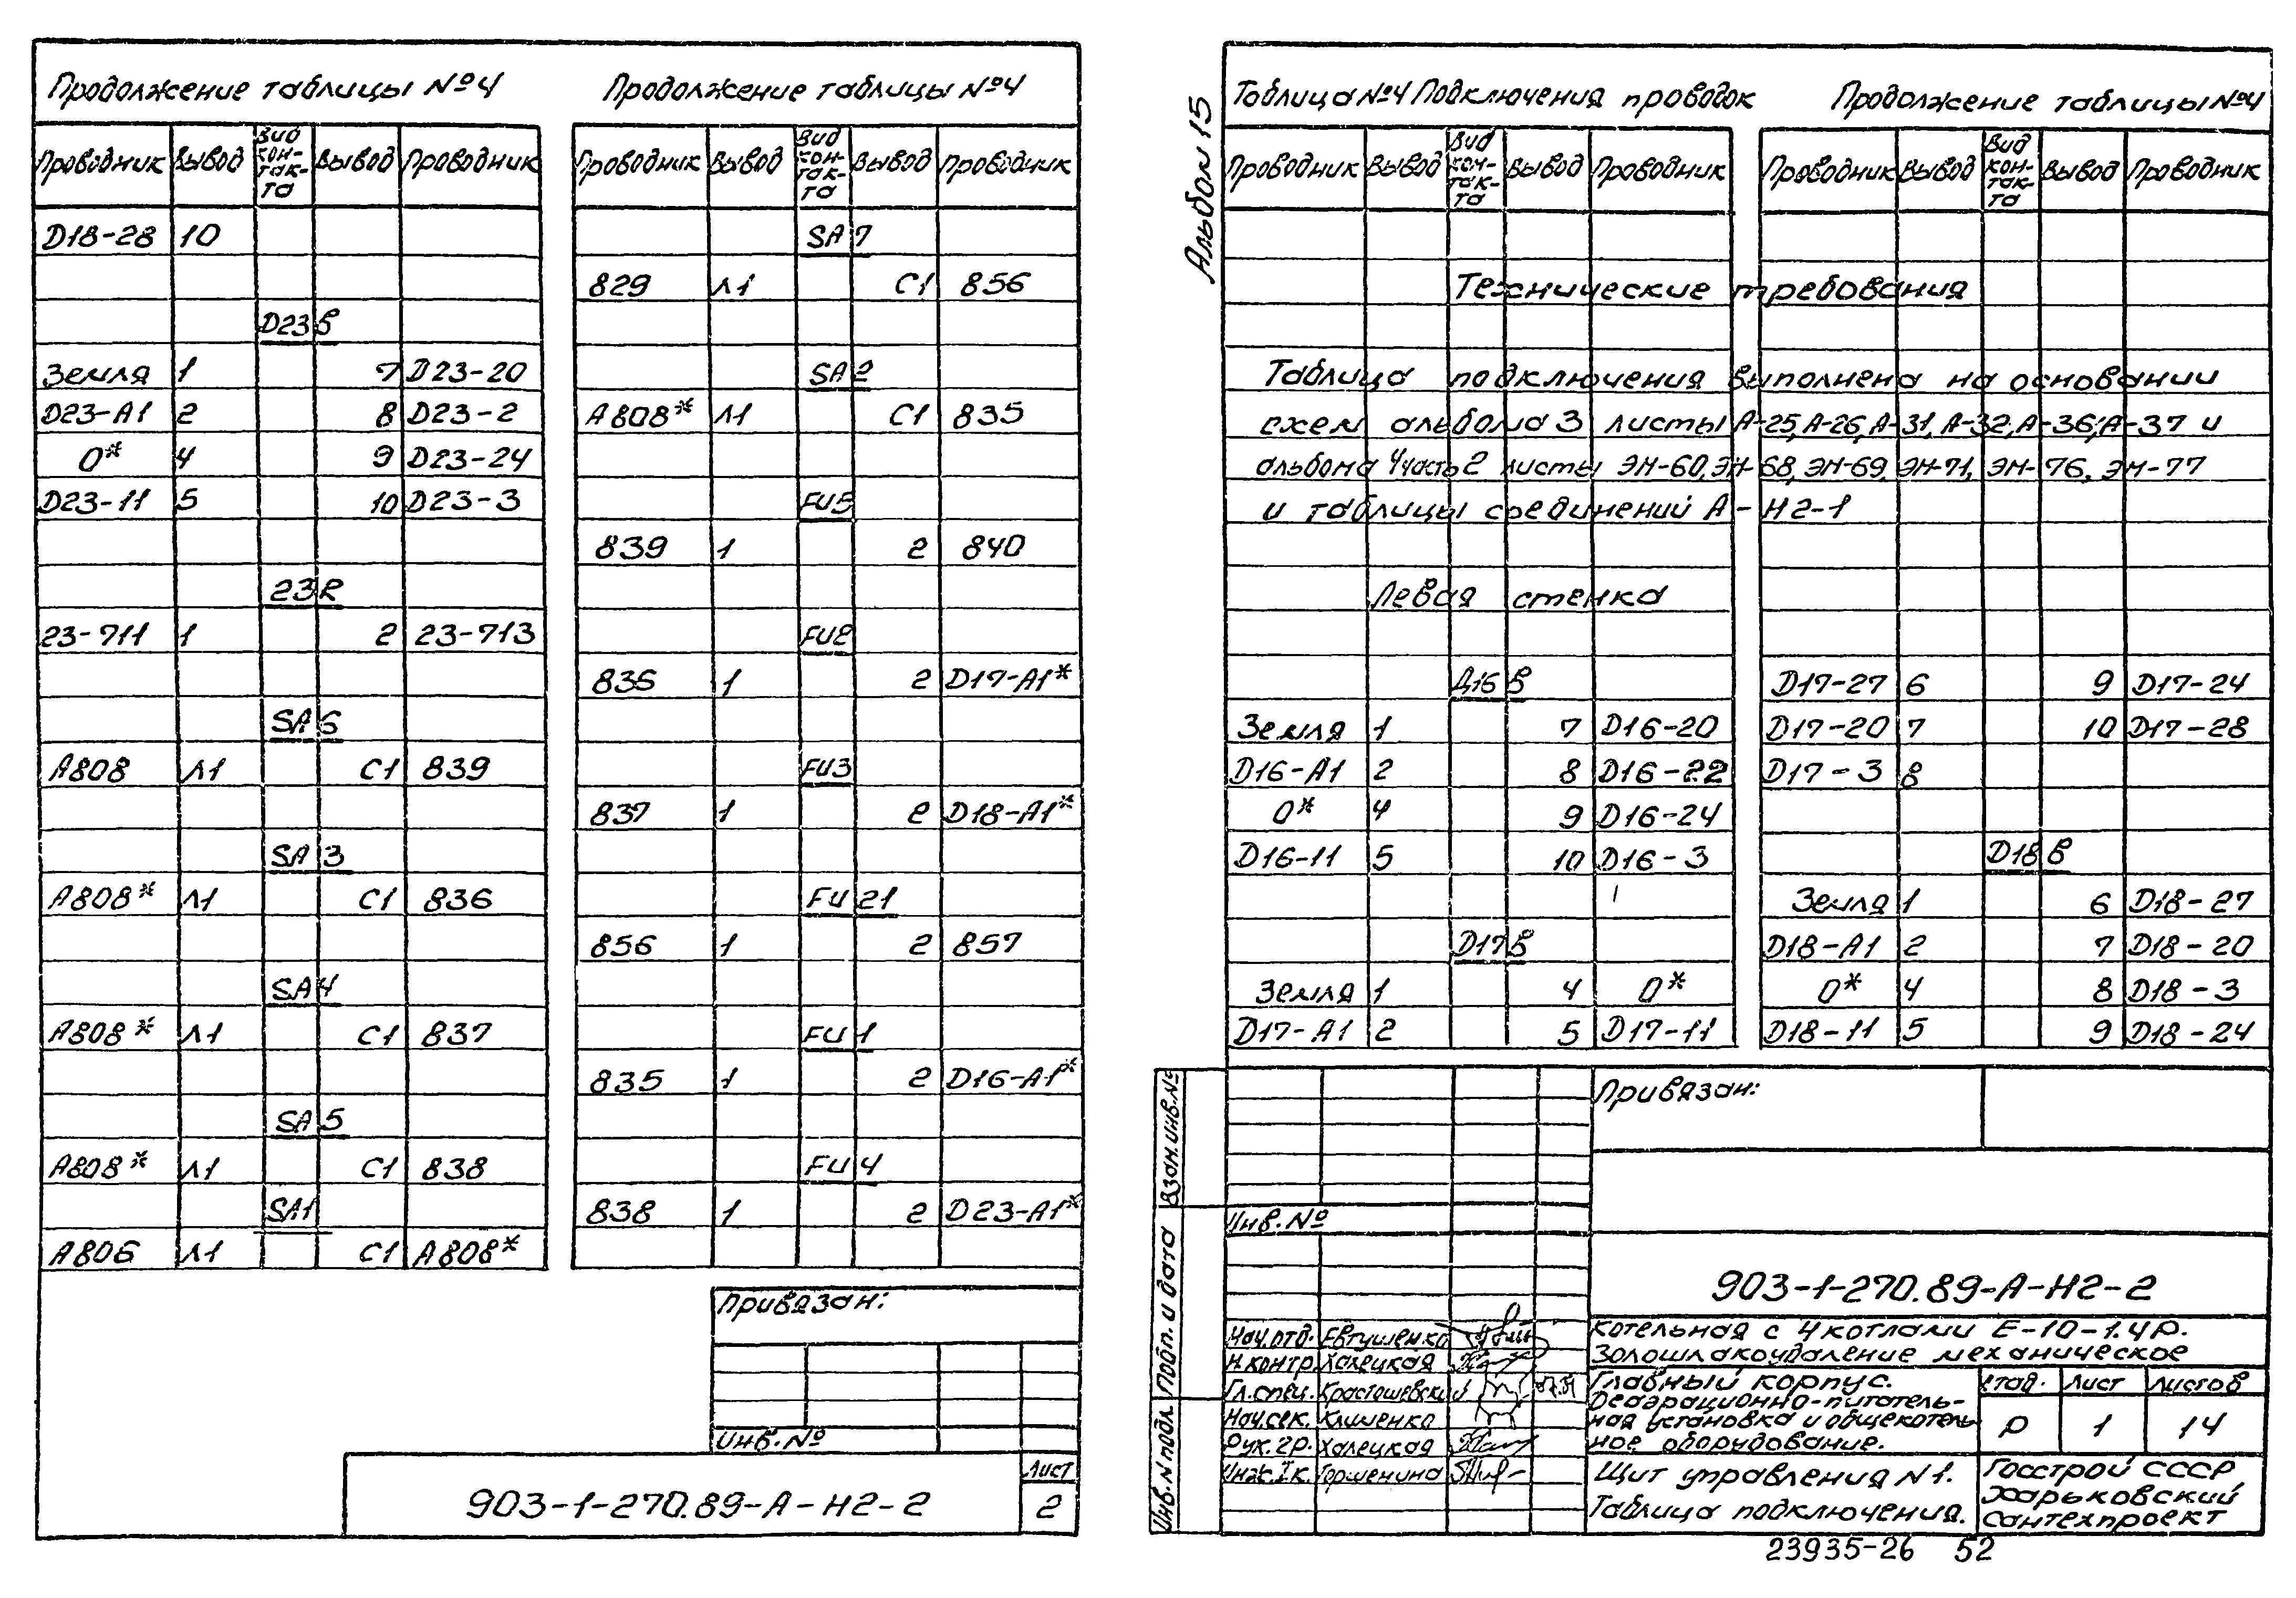 Продолжение таблицы №4
Проводник Вывод Вид кон-так-та Вывод Проводник
D18-28 10
D23в
Земля 1 7 D23-20
D23-А1 2 8 D23-2
0* 4 9 D23-24
D23-11 5 10 D23-3
23R
23-711 1 2 23-713
SA6
А808 Л1 С1 839
SA3
А808* Л1 С1 836
SA4
А808* Л1 С1 837
SA5
А808* Л1 С1 838
SA1
А806 Л1 С1 А808*
Продолжение таблицы №4
Проводник Вывод Вид кон-так-та Вывод Проводник
SA7
829 Л1 С1 856
SA2
А808* Л1 С1 835
FU5
839 1 2 840
FU2
836 1 2 D17-А1*
FU3
837 1 2 D18-А1*
FU21
856 1 2 857
FU1
835 1 2 D16-А1*
FU4
838 1 2 D23-А1*
Привязан:
Инв.№
903-1-270.89-А-Н2-2
Лист
2
Альбом 15
Таблица №4 Подключения проводок
Проводник Вывод Вид кон-так-та Вывод Проводник
Продолжение таблицы №4
Проводник Вывод Вид кон-так-та Вывод Проводник
Технические требования
Таблица подключения выполнена на основании
схем альбома 3 листы А-25, А-26, А-31, А-32, А-36, А-37 и
альбома 4 часть 2 листы ЭМ-60, ЭМ-68, ЭМ-69, ЭМ-71, ЭМ-76, ЭМ-77
и таблицы соединений А-Н2-1
Левая стенка
Д16в
Земля 1 7 D16-20
D16-А1 2 8 D16-22
0* 4 9 D16-24
D16-11 5 10 D16-3
D17в
Земля 1 4 0*
D17-А1 2 5 D17-11
D17-27 6 9 D17-24
D17-20 7 10 D17-28
D17-3 8
D18в
Земля 1 6 D18-27
D18-А1 2 7 D18-20
0* 4 8 D18-3
D18-11 5 9 D18-24
Взам.инв.№
Подп. и дата
Инв.N подл.
Привязан:
Инв.№
903-1-270.89-А-Н2-2
Нач.отд. Евтушенко
Н.контр. Халецкая
Гл.спец. Красташевский 07.89
Нач.сек. Клименко
Рук.гр. Халецкая
Инж.I к. Горшенина
Котельная с 4 котлами Е-10-1.4Р.
Золошлакоудаление механическое
Главный корпус.
Деаэрационно-питатель-
ная установка и общекотель-
ное оборудование.
Стад. Лист Листов
Р 1 14
Щит управления N1.
Таблица подключения.
Госстрой СССР
Харьковский
Сантехпроект
23935-26 52